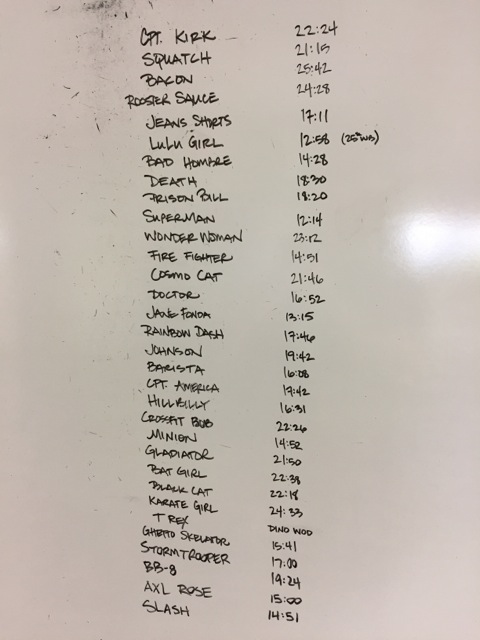 CPT. KIRK 22:24
SQUATCH 21:15
BACON 25:42
ROOSTER SAUCE 24:28
JEANS SHORTS 17:11
LULU GIRL 12:58 (25# WB)
BAD HOMBRE 14:28
DEATH 18:30
PRISON BILL 18:20
SUPERMAN 12:14
WONDER WOMAN 23:12
FIRE FIGHTER 14:51
COSMO CAT 21:46
DOCTOR 16:52
JANE FONDA 13:15
RAINBOW DASH 17:46
JOHNSON 19:42
BARISTA 16:08
CPT. AMERICA 17:42
HILLBILLY 16:31
CROSSFIT BUB 22:26
MINION 14:52
GLADIATOR 21:50
BAT GIRL 22:38
BLACK CAT 22:18
KARATE GIRL 24:33
T REX DINO WOD
GHETTO SKELATOR 15:41
STORMTROOPER 17:00
BB-8 19:24
AXL ROSE 15:00
SLASH 14:51